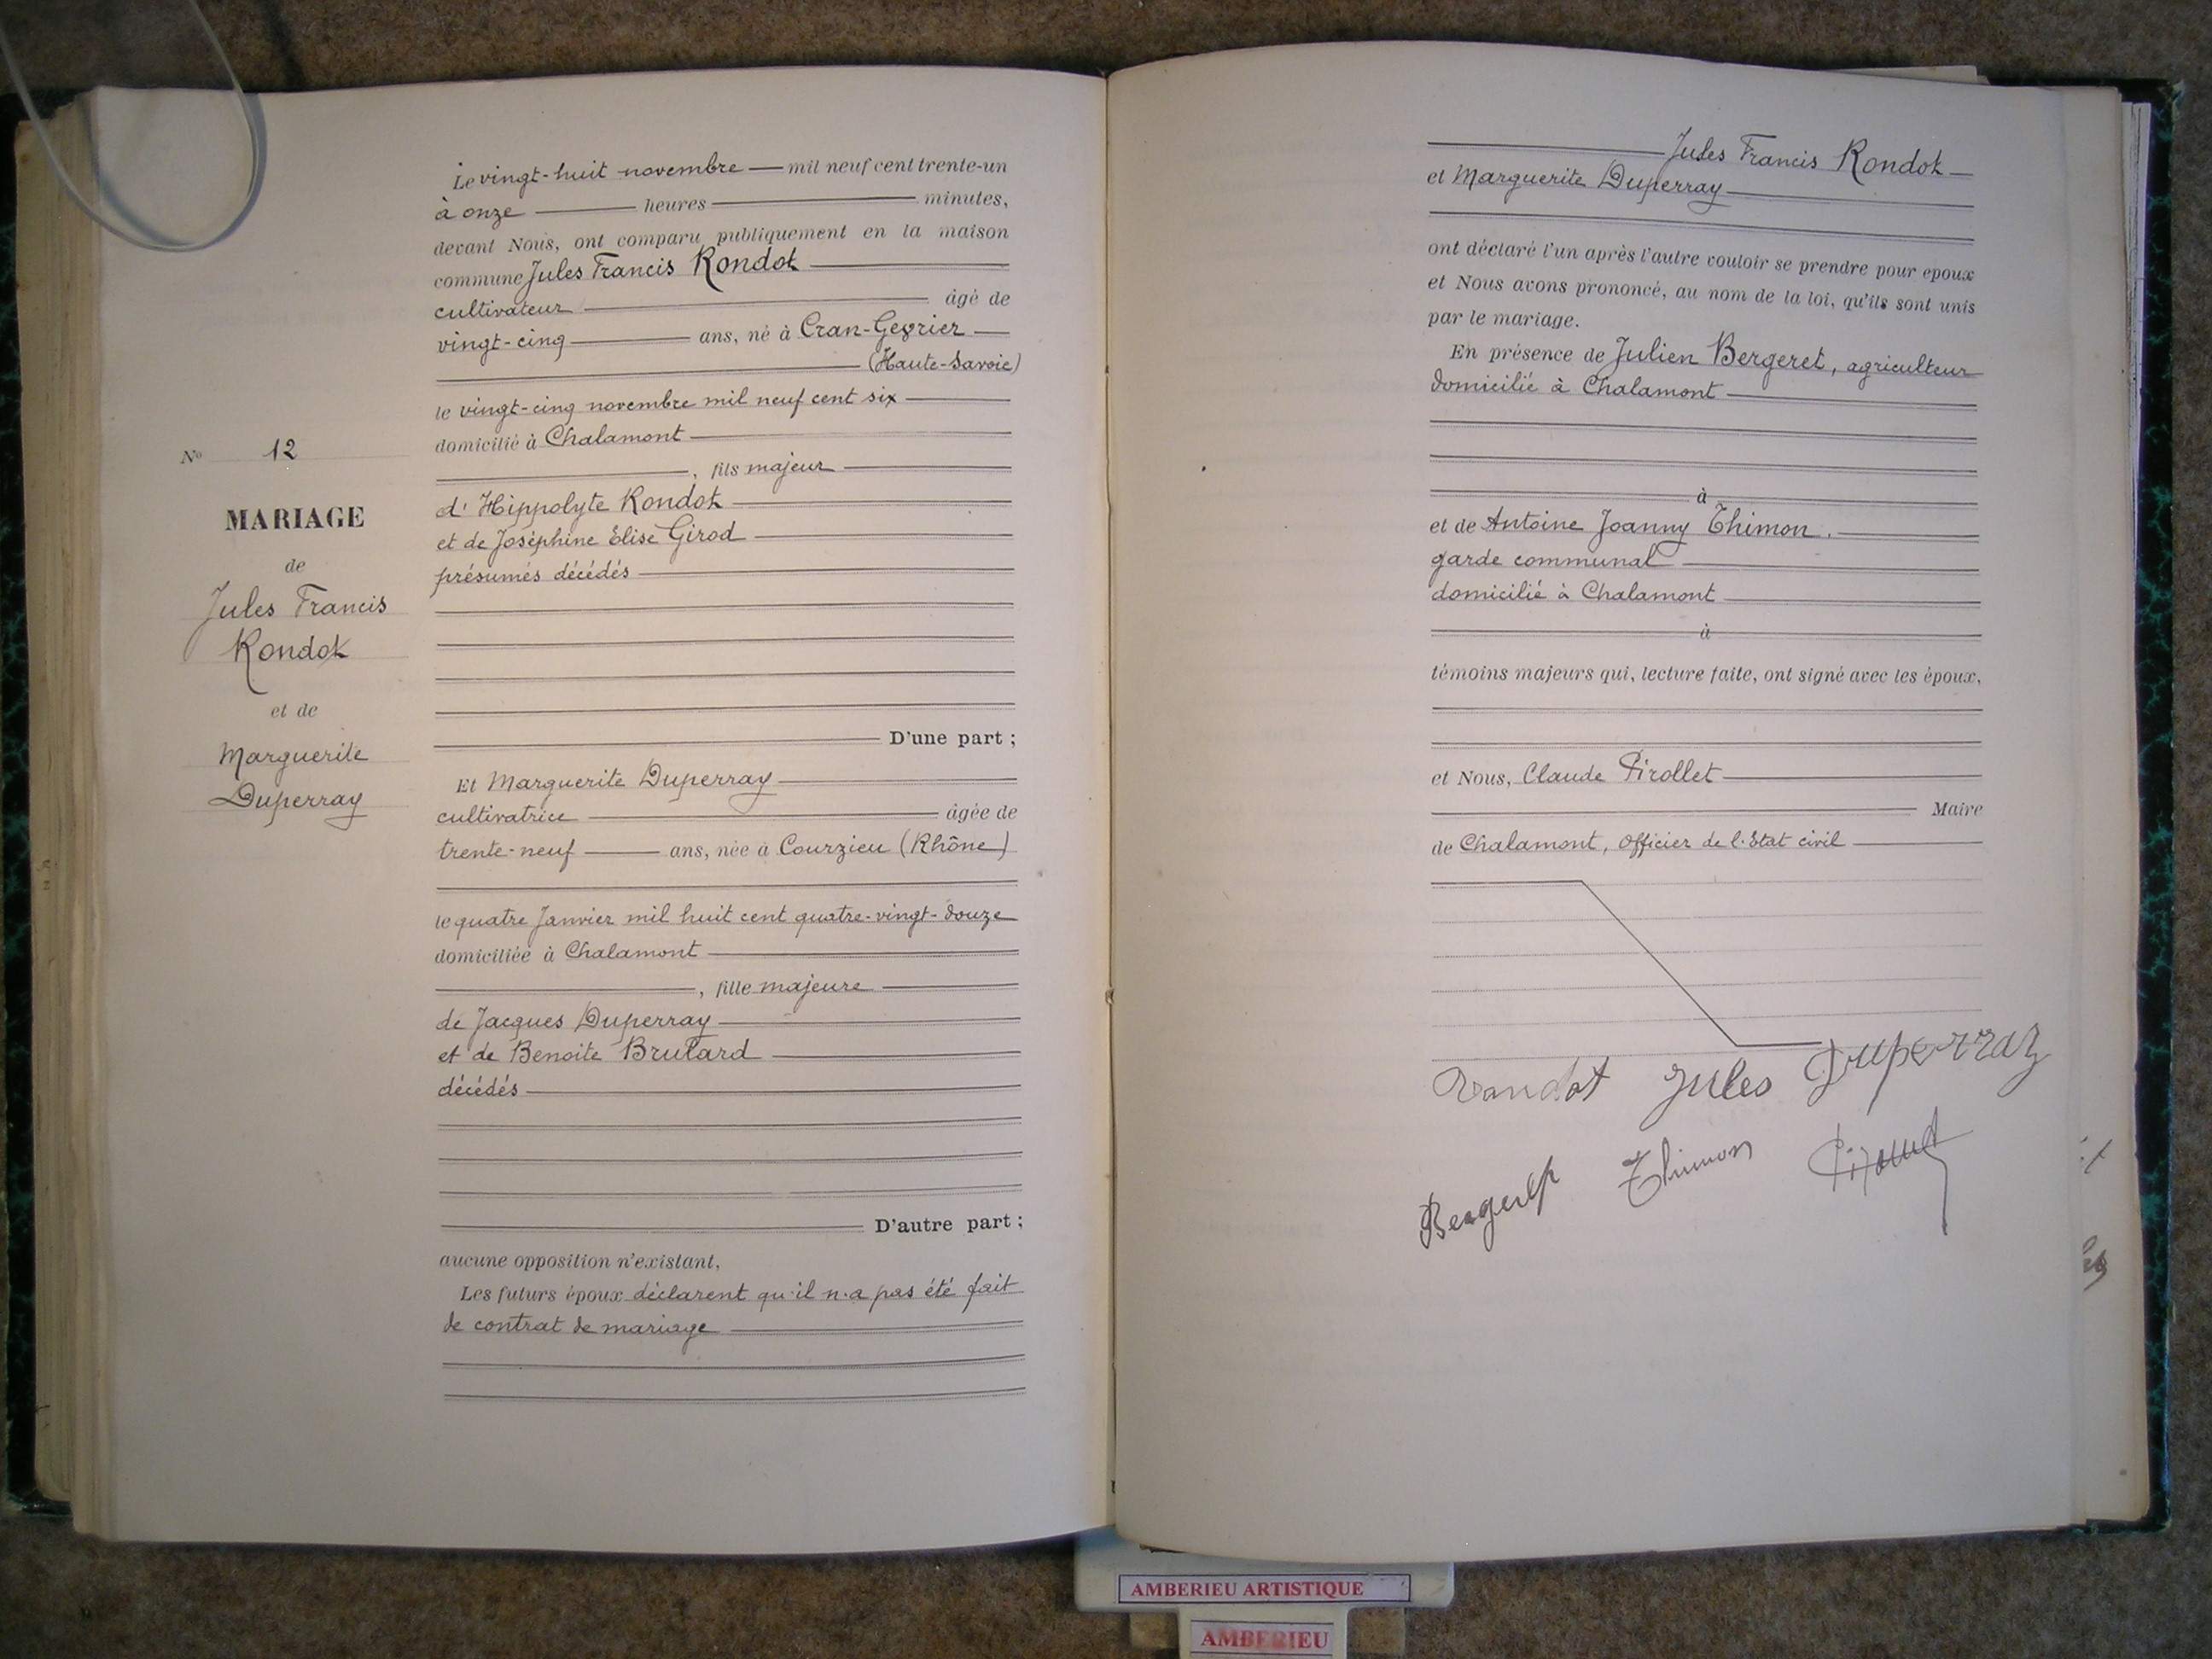 Nº 12
MARIAGE
de
Jules Francis
Rondot
et de
Marguerite
Duperray
Le vingt-huit novembre mil neuf cent trente-un
à onze heures minutes,
devant Nous, ont comparu publiquement en la maison
commune Jules Francis Rondot
cultivateur âgé de
vingt-cinq ans, né à Cran-Gevrier
(Haute-Savoie)
le vingt-cinq novembre mil neuf cent six
domicilié à Chalamont
, fils majeur
d'Hippolyte Rondot
et de Joséphine Elise Girod
présumés décédés
D'une part ;
Et Marguerite Duperray
cultivatrice âgée de
trente-neuf ans, née à Courzieu (Rhône)
le quatre Janvier mil huit cent quatre-vingt-douze
domiciliée à Chalamont
, fille majeure
de Jacques Duperray
et de Benoite Brutard
décédés
D'autre part ;
aucune opposition n'existant,
Les futurs époux déclarent qu'il n'a pas été fait
de contrat de mariage
Jules Francis Rondot
et Marguerite Duperray
ont déclaré l'un après l'autre vouloir se prendre pour epoux
et Nous avons prononcé, au nom de la loi, qu'ils sont unis
par le mariage.
En présence de Julien Bergeret, agriculteur
domicilié à Chalamont
à
et de Antoine Joanny Thimon.
garde communal
domicilié à Chalamont
à
témoins majeurs qui, lecture faite, ont signé avec les époux,
et Nous, Claude Pirollet
Maire
de Chalamont, officier de l'Etat civil
Rondot Jules Duperray
Bergeret Thimon Pirollet
AMBERIEU ARTISTIQUE
AMBERIEU